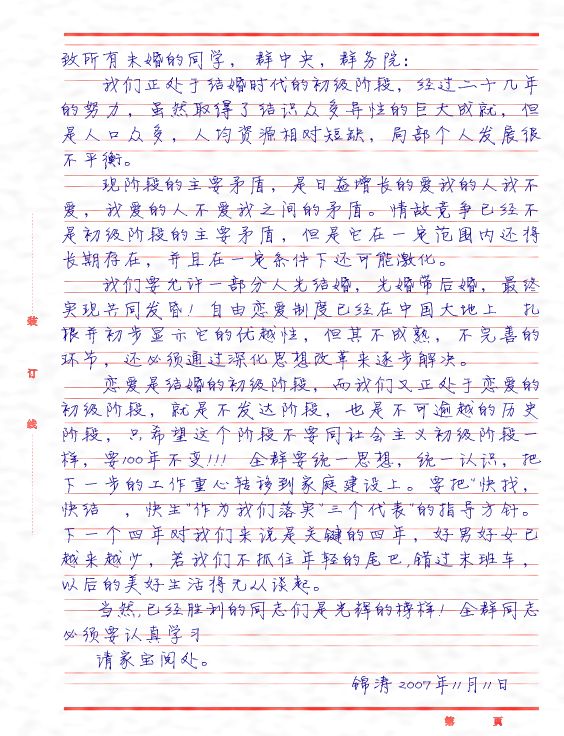 致所有未婚的同学，群中央，群务院：
我们正处于结婚时代的初级阶段，经过二十几年
的努力，虽然取得了结识众多异性的巨大成就，但
是人口众多，人均资源相对短缺，局部个人发展很
不平衡。
现阶段的主要矛盾，是日益增长的爱我的人我不
爱，我爱的人不爱我之间的矛盾。情敌竞争已经不
是初级阶段的主要矛盾，但是它在一定范围内还将
长期存在，并且在一定条件下还可能激化。
我们要允许一部分人先结婚，先婚带后婚，最终
实现共同发昏！自由恋爱制度已经在中国大地上 扎
根并初步显示它的优越性，但其不成熟，不完善的
环节，还必须通过深化思想改革来逐步解决。
恋爱是结婚的初级阶段，而我们又正处于恋爱的
初级阶段，就是不发达阶段，也是不可逾越的历史
阶段，只希望这个阶段不要同社会主义初级阶段一
样，要100年不变!!! 全群要统一思想，统一认识，把
下一步的工作重心转移到家庭建设上。要把"快找，
快结 ，快生"作为我们落实"三个代表"的指导方针。
下一个四年对我们来说是关键的四年，好男好女已
越来越少，若我们不抓住年轻的尾巴,错过末班车，
以后的美好生活将无从谈起。
当然,已经胜利的同志们是光辉的榜样！全群同志
必须要认真学习
请家宝阅处。
锦涛 2007年11月11日
装
订
线
第 页